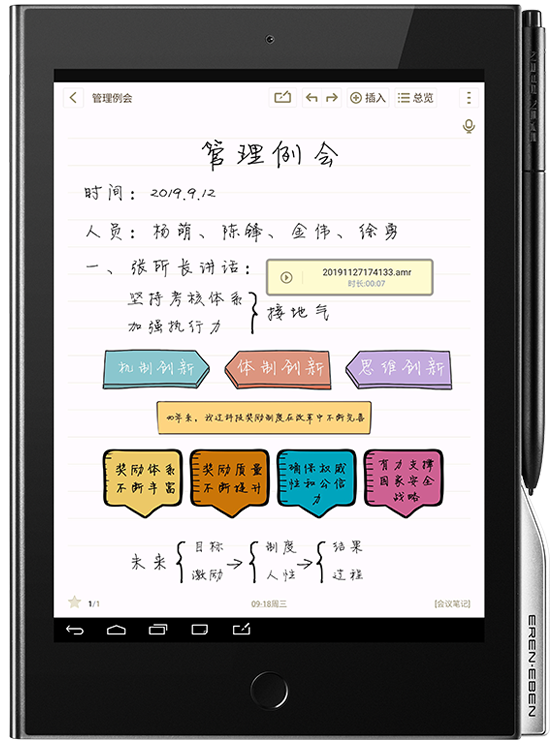 管理例会
插入
总览
管理例会
时间：2019.9.12
人员：杨萌、陈锋、金伟、徐勇
一、张所长讲话：
20191127174133.amr
时长:00:07
坚持考核体系
加强执行力
接地气
机制创新
体制创新
思维创新
四年来，我这科技奖励制度在改革中不断完善
奖励体系
不断丰富
奖励质量
不断提升
确保权威
性和公信
力
有力支撑
国家安全
战略
未来
目标
激励
制度
人性
结果
过程
1/1
09:18周三
[会议笔记]
EREN·EBEN